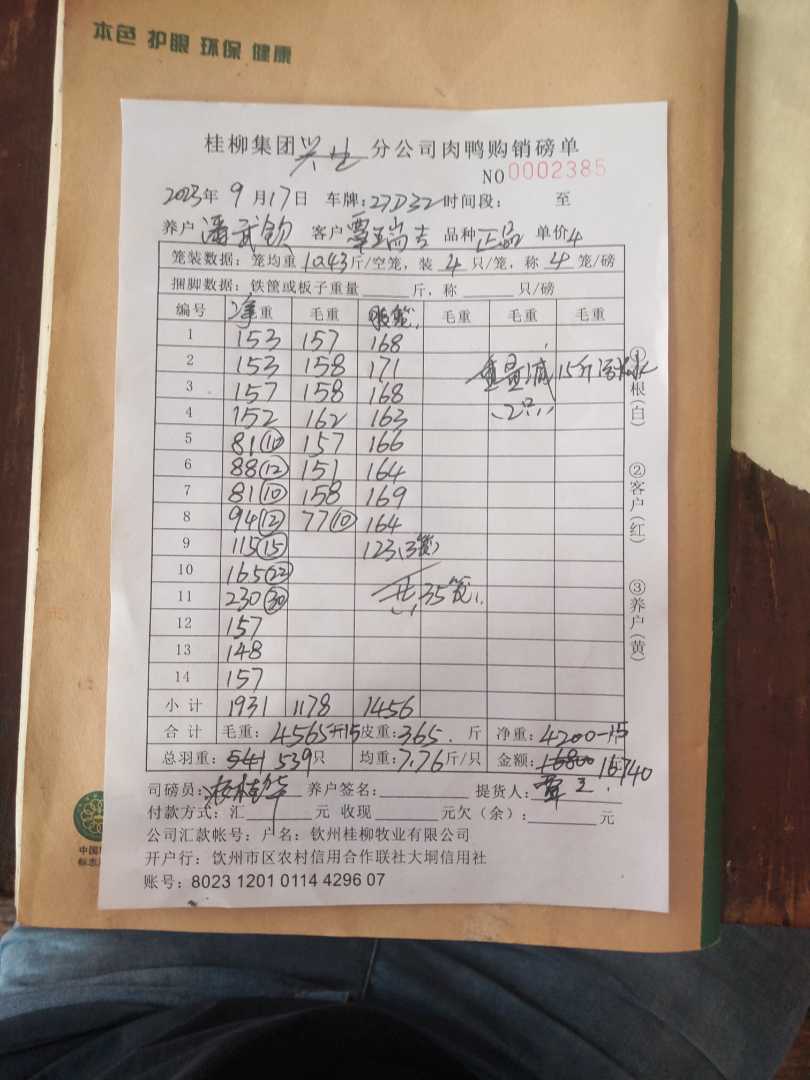 本色 护眼 环保 健康
桂柳集团兴业分公司肉鸭购销磅单
NO 0002385
2023年 9 月 17 日 车牌: 27D32 时间段: 至
养户 潘武钦 客户 覃瑞吉 品种 正品 单价 4
笼装数据: 笼均重 10.43 斤/空笼, 装 4 只/笼, 称 4 笼/磅
捆脚数据: 铁筐或板子重量 斤, 称 只/磅
编号 净重 毛重 毛重 毛重 毛重
1 153 157 168
2 153 158 171
3 157 158 168
4 152 162 163
5 81⑩ 157 166
6 88⑫ 151 164
7 81⑩ 158 169
8 94⑫ 77⑩ 164
9 115⑮ 123(3笼)
10 165㉒ 共35笼
11 230㉚
12 157
13 148
14 157
重量减15斤
2只
小计 1931 1178 1456
合计 毛重: 4565斤 15 皮重: 365. 斤 净重: 4200-15
总羽重: 541 539 只 均重: 7.76 斤/只 金额: 16800 16740
司磅员: 养户签名: 提货人: 覃
付款方式: 汇 元 收现 元欠(余): 元
公司汇款帐号: 户名: 钦州桂柳牧业有限公司
开户行: 饮州市区农村信用合作联社大垌信用社
账号: 8023 1201 0114 4296 07
①存根(白)
②客户(红)
③养户(黄)